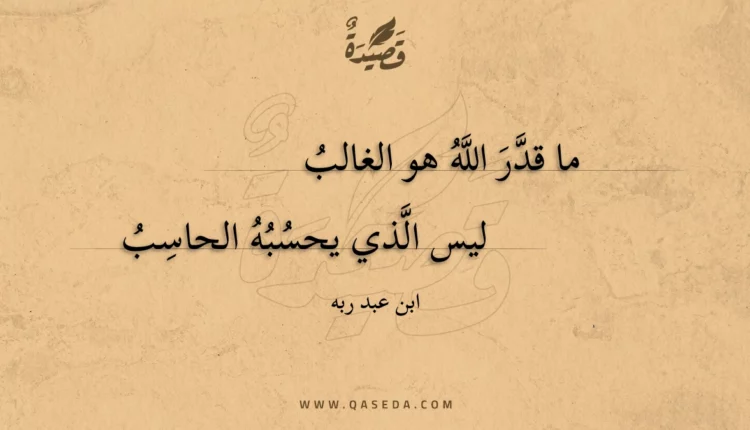 قَصِيْدَةٌ
ما قدَّرَ اللَّهُ هو الغالبُ
ليس الَّذي يحسُبُهُ الحاسِبُ
ابن عبد ربه
WWW.QASEDA.COM